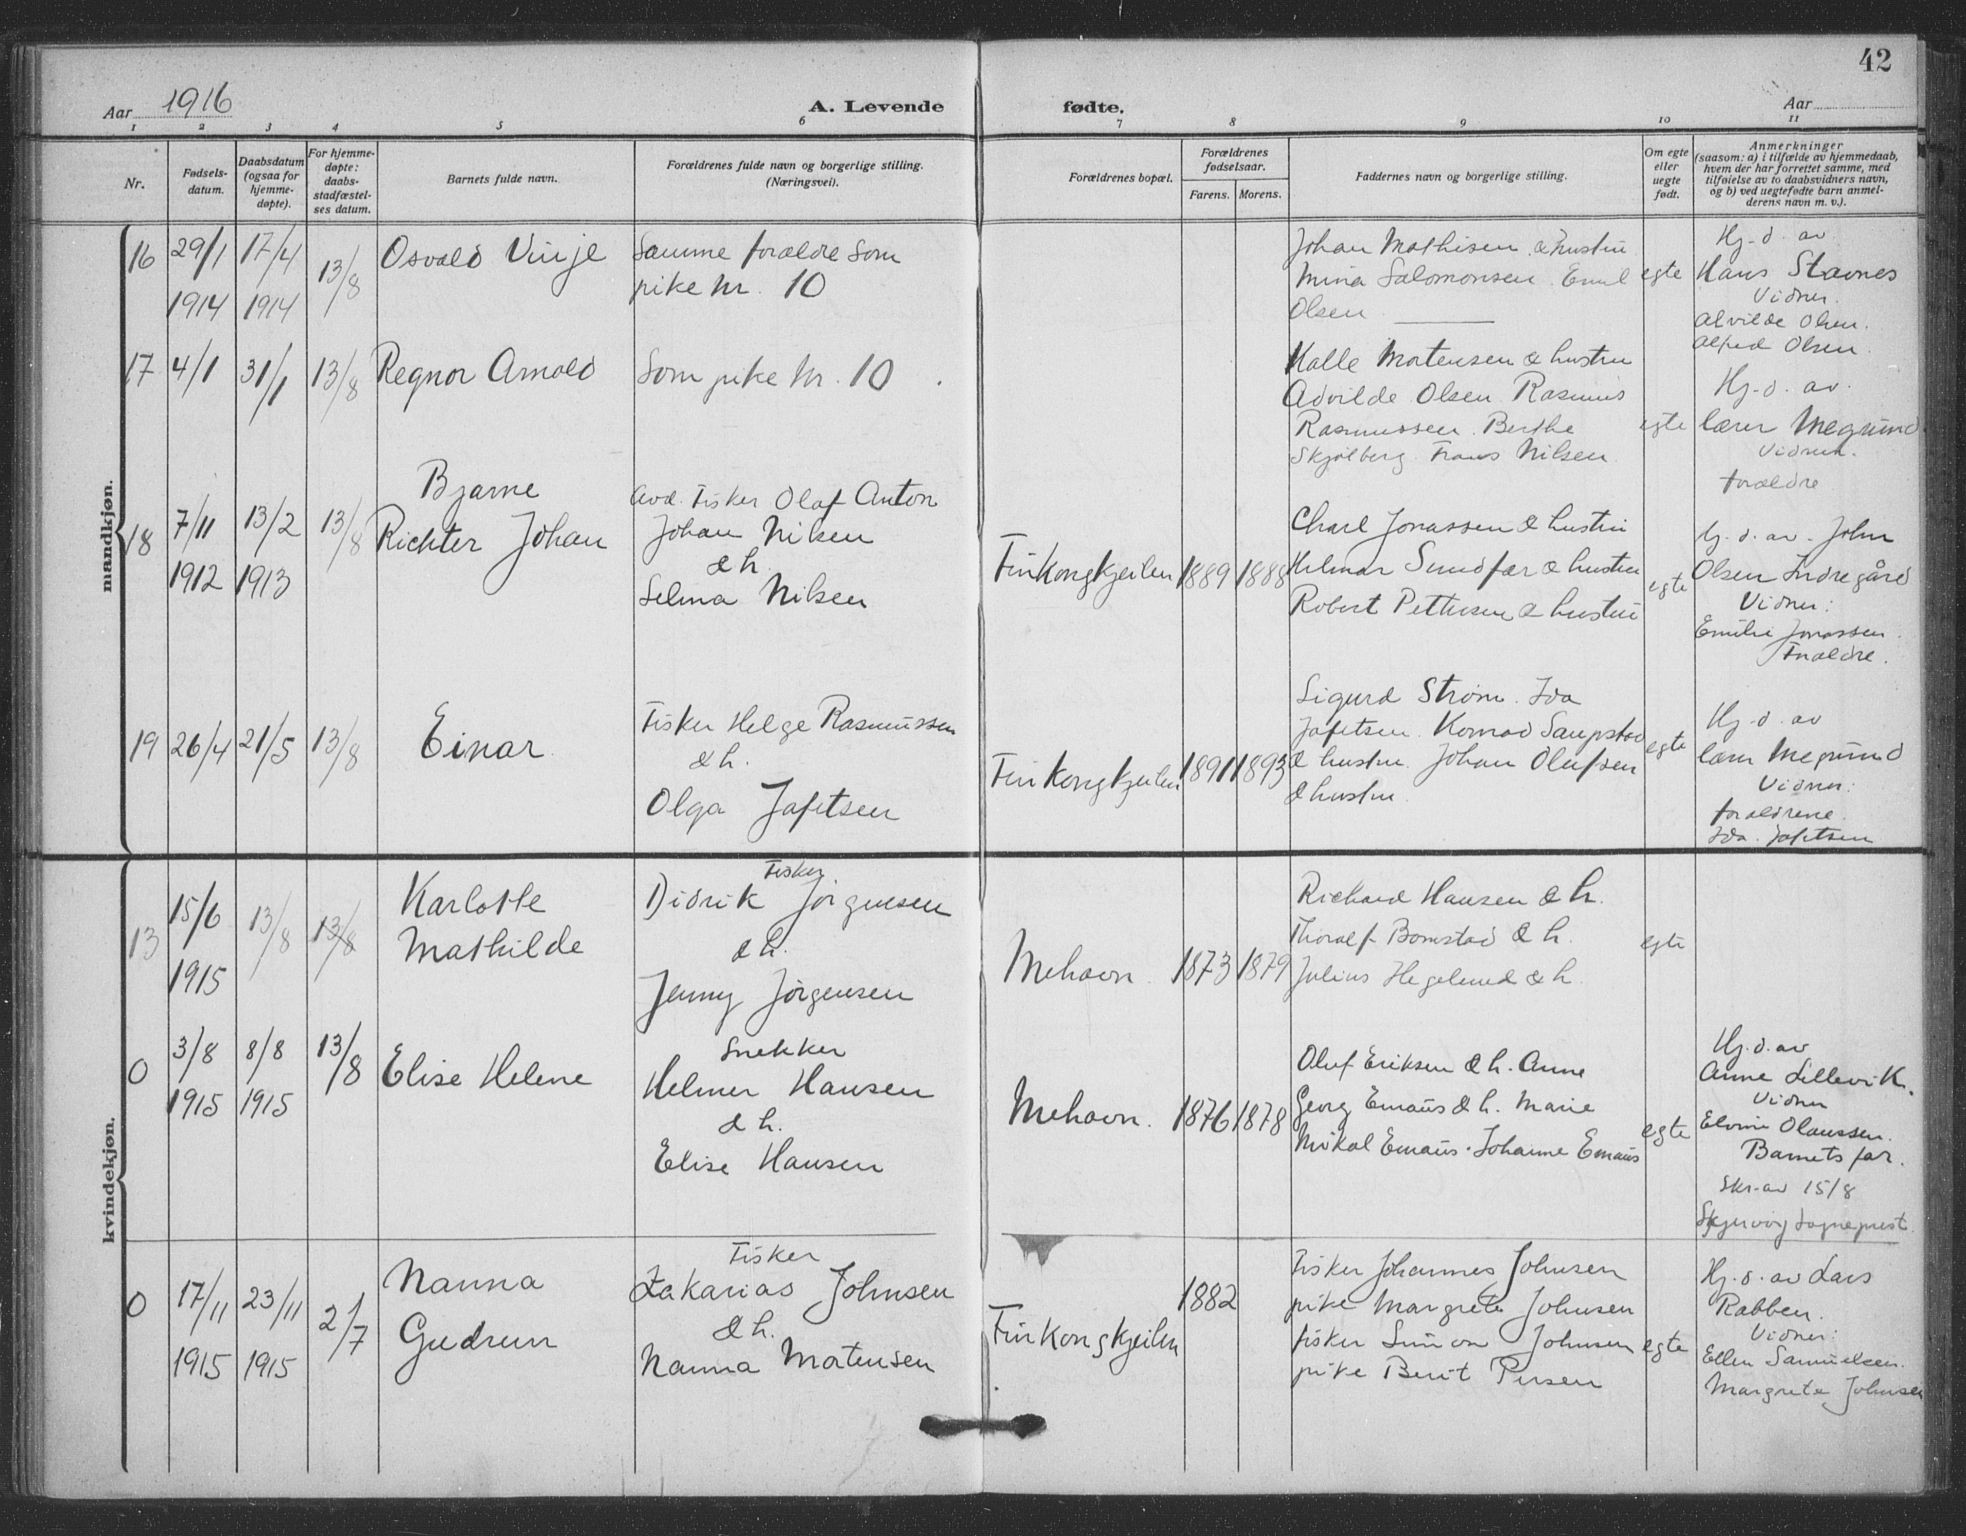 42
Aar 1916
A. Levende
fødte.
Aar
1 2 3 4 5 6 7 8 9 10 11
Nr.
Fødsels-
datum.
Daabsdatum
(ogsaa for
hjemme-
døpte).
For hjemme-
døpte:
daabs-
stadfæstel-
ses datum.
Barnets fulde navn.
Forældrenes fulde navn og borgerlige stilling.
(Næringsvei).
Forældrenes bopæl.
Forældrenes
fødselsaar.
Farens. Morens.
Faddernes navn og borgerlige stilling.
Om egte
eller
uegte
født.
Anmerkninger
(saasom: a) i tilfælde av hjemmedaab,
hvem der har forrettet samme, med
tilføielse av to daabsvidners navn,
og b) ved uegtefødte barn anmel-
derens navn m. v.).
mandkjøn.
16
29/1
1914
17/4
1914
13/8
Osvald Vinje
Samme forældre som
pike Nr. 10
Johan Mathisen & hustru
Mina Salomonsen. Emil
Olsen
egte
Hj. d. av
Hans Stavnes
Vidner.
Alvilde Olsen.
Alfred Olsen
17
4/1
31/1
13/8
Regnor Arnold
Som pike Nr. 10
Kalle Mortensen & hustru
Advilde Olsen Rasmus
Rasmussen. Berthe
Skjølberg. Frans Nilsen
egte
Hj. d. av.
lærer Megrund
Vidner.
forældre
18
7/11
1912
13/2
1913
13/8
Bjarne
Richter Johan
Avd. Fisker Olaf Anton
Johan Nilsen
& h.
Selma Nilsen
Finkongkjeilen
1889
1888
Charl Jonassen & hustru
Hilmar Sundfær & hustru
Robert Pettersen & hustru
egte
hj. d. av. John
Olsen Indregård
Vidner:
Emilie Jonassen.
Forældre.
19
26/4
21/5
13/8
Einar
Fisker Helge Rasmussen
& h.
Olga Jafetsen
Finkongkjeilen
1891
1893
Sigurd Strøm. Ida
Jafetsen. Konrad
& hustru. Johan Olufsen
& hustru.
egte
Hj. d. av
lærer Megrund
Vidner:
forældrene.
Ida. Jafetsen
kvindekjøn.
13
15/6
1915
13/8
13/8
Karlotte
Mathilde
Fisker
Didrik Jörgensen
& h.
Jenny Jörgensen
Mehavn.
1873
1879
Richard Hansen & h.
Thoralf Bomstad & h.
Julius Hegelund & h.
egte
0
3/8
1915
8/8
1915
13/8
Elise Helene
Snekker
Helmer Hansen
& h.
Elise Hansen
Mehavn.
1876
1878
Oluf Eriksen & h. Anne
Georg Emaus & h. Marie
Nikol Emaus. Johanne Emaus
egte
Hj. d. av
Anne Lillevik.
Vidner
Elvine Olaussen.
Barnets far.
Skr. av 15/8
Skjervig Sogneprest.
0
17/11
1915
23/11
1915
2/7
Nanna
Gudrun
Fisker
Zakarias Johnsen
& h.
Nanna Mortensen
Finkongkjeilen
1882
Fisker Johannes Johnsen
pike Margrete Johnsen
fisker Simon Johnsen
pike Berit Persen
egte
Hj. d. av Lars
Rabben.
Vidner:
Ellen Samuelsen.
Margrete Johnsen